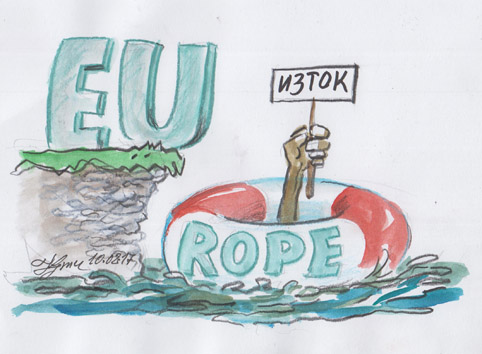 EU
ИЗТОК
ROPE
10.08.17